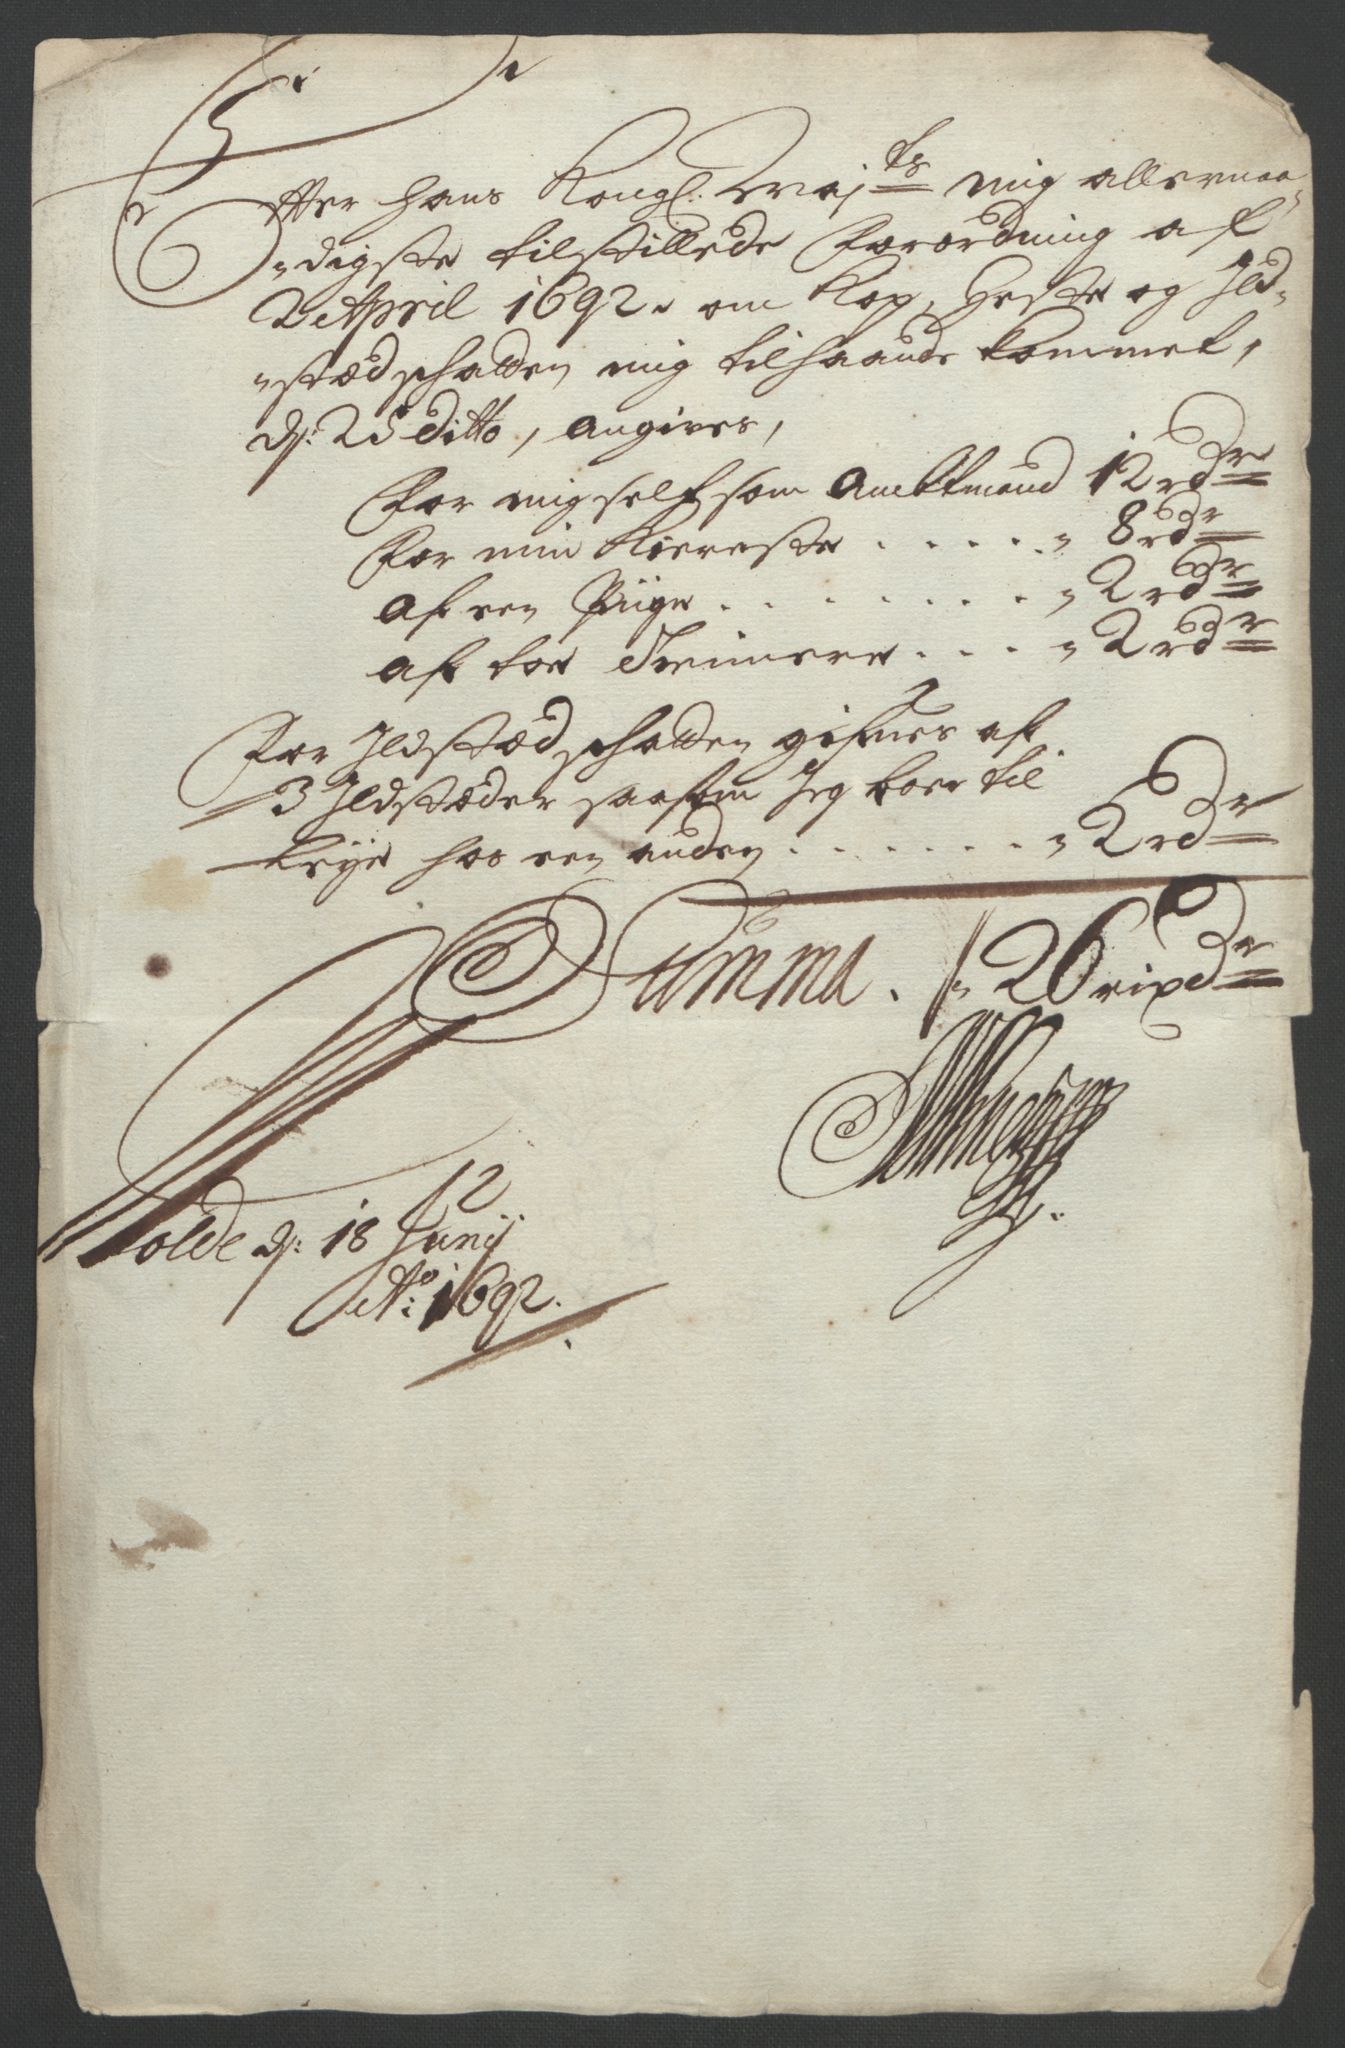 Efter Hans Kongl: Maj:ts mig allernaa-
digste tilstillede Forordning af
2 April 1692. om Kop, Heste og Ild-
stæd schatten mig tilhaande kommet,
d: 25 ditto, angives,
For mig self som Ambtmand 12 rdr
For min Kiereste . . . . . 8 rdr
af een Piige . . . . . . . . 2 rdr
af toe Tiennere . . . . 2 rdr
For Ildstæd schatten gifves af
3 Ildstæder saasom Jeg boer til
Leye hos een anden . . . . . . . 2 rdr
Summa . 26 rixdr
Molde d: 18 Junij
Ao: 1692.